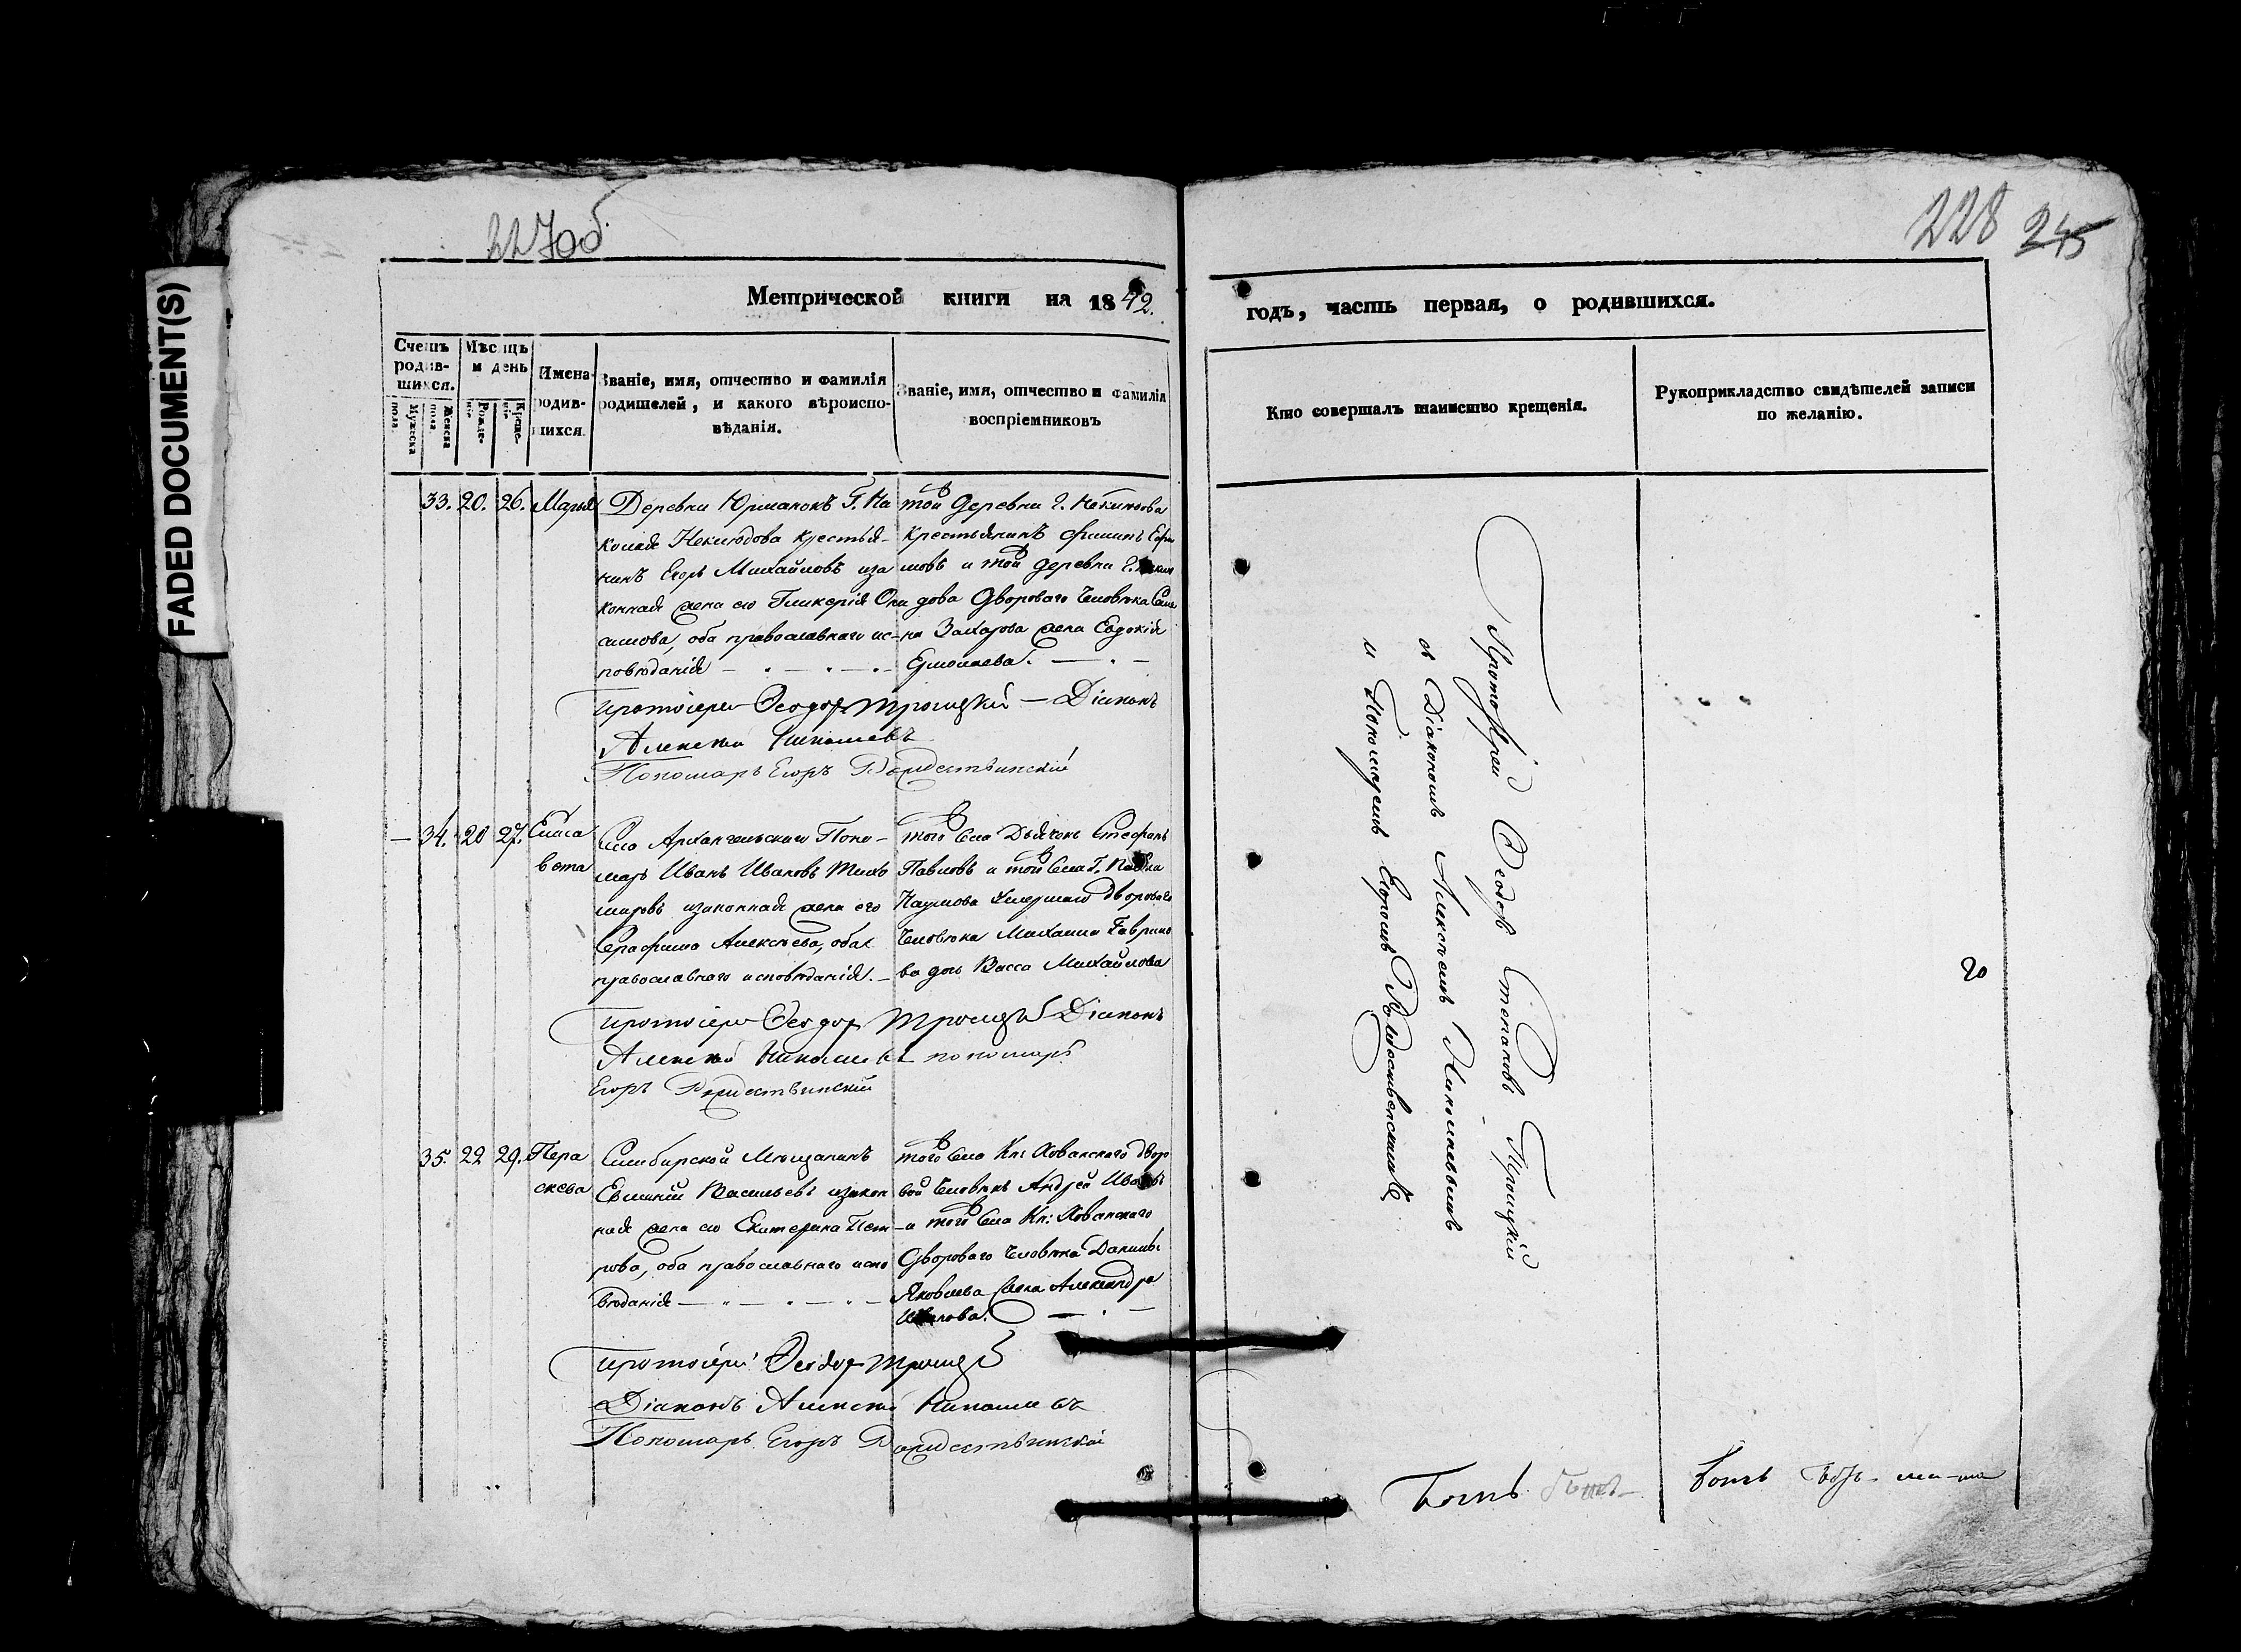 FADED DOCUMENT(S)
227об.
228 245
Метрической книги на 1842.
годъ, часть первая, о родившихся.
Счетъ родив-шихся.
Мужеска пола.
Женска пола.
Мѣсяцъ и день
Рожде-нія.
Креще-нія.
Имена родив-шихся.
Званіе, имя, отчество и фамилія родителей, и какого вѣроиспо-вѣданія.
Званіе, имя, отчество и фамилія воспріемниковъ
Кто совершалъ таинство крещенія.
Рукоприкладство свидѣтелей записи по желанію.
33. 20. 26. Марья
Деревни Юрманокъ Г. Ни
колая Неклюдова крестья-
нинъ Егоръ Михайловъ иза
конная жена его Гликерія Они
симова, оба православнаго ис-
повѣданія
той деревни Г. Неклюдова
крестьянинъ
мовъ и той деревни Г. Неклю
дова Двороваго человѣка Семе
на Захарова жена Евдокія
Ермолаева.
Протоіерей Ѳеодоръ Троицкій — Діаконъ
Алексѣй Николаевъ
Пономарь Егоръ Рождественскій
34. 20 27. Елиса
вета
Села Архангельскаго Поно-
марь Иванъ Ивановъ Тихо
мировъ изаконная жена его
Серафима Алексѣева, оба
православнаго исповѣданія.
того села Дьячекъ Стефанъ
Павловъ и той села Г. Павла
Наумова умершаго двороваго
человѣка Михаила Гаврило
ва дочь Васса Михайлова
Протоіерей Ѳеодоръ Троицкій Діаконъ
Алексѣй Николаевъ пономарь
Егоръ Рождественскій
35. 22 29. Пера
скева
Симбирской Мѣщанинъ
Евгеній Васильевъ изакон
ная жена его Екатерина Пет-
рова, оба православнаго испо
вѣданія
того села Кн: Хованскаго дворо
вой человѣкъ Андрей Ивановъ
и того села Кн: Хованскаго
Двороваго человѣка Данилы
Яковлева жена Александра
Иванова.
Протоіерей Ѳеодоръ Троицкій
Діаконъ Алексѣй Николаевъ
Пономарь Егоръ Рождественскій
Протоіерей Ѳеодоръ Степановъ Троицкій
съ Діакономъ Алексѣемъ Николаевымъ
и Пономаремъ Егоромъ Рождественскимъ
20